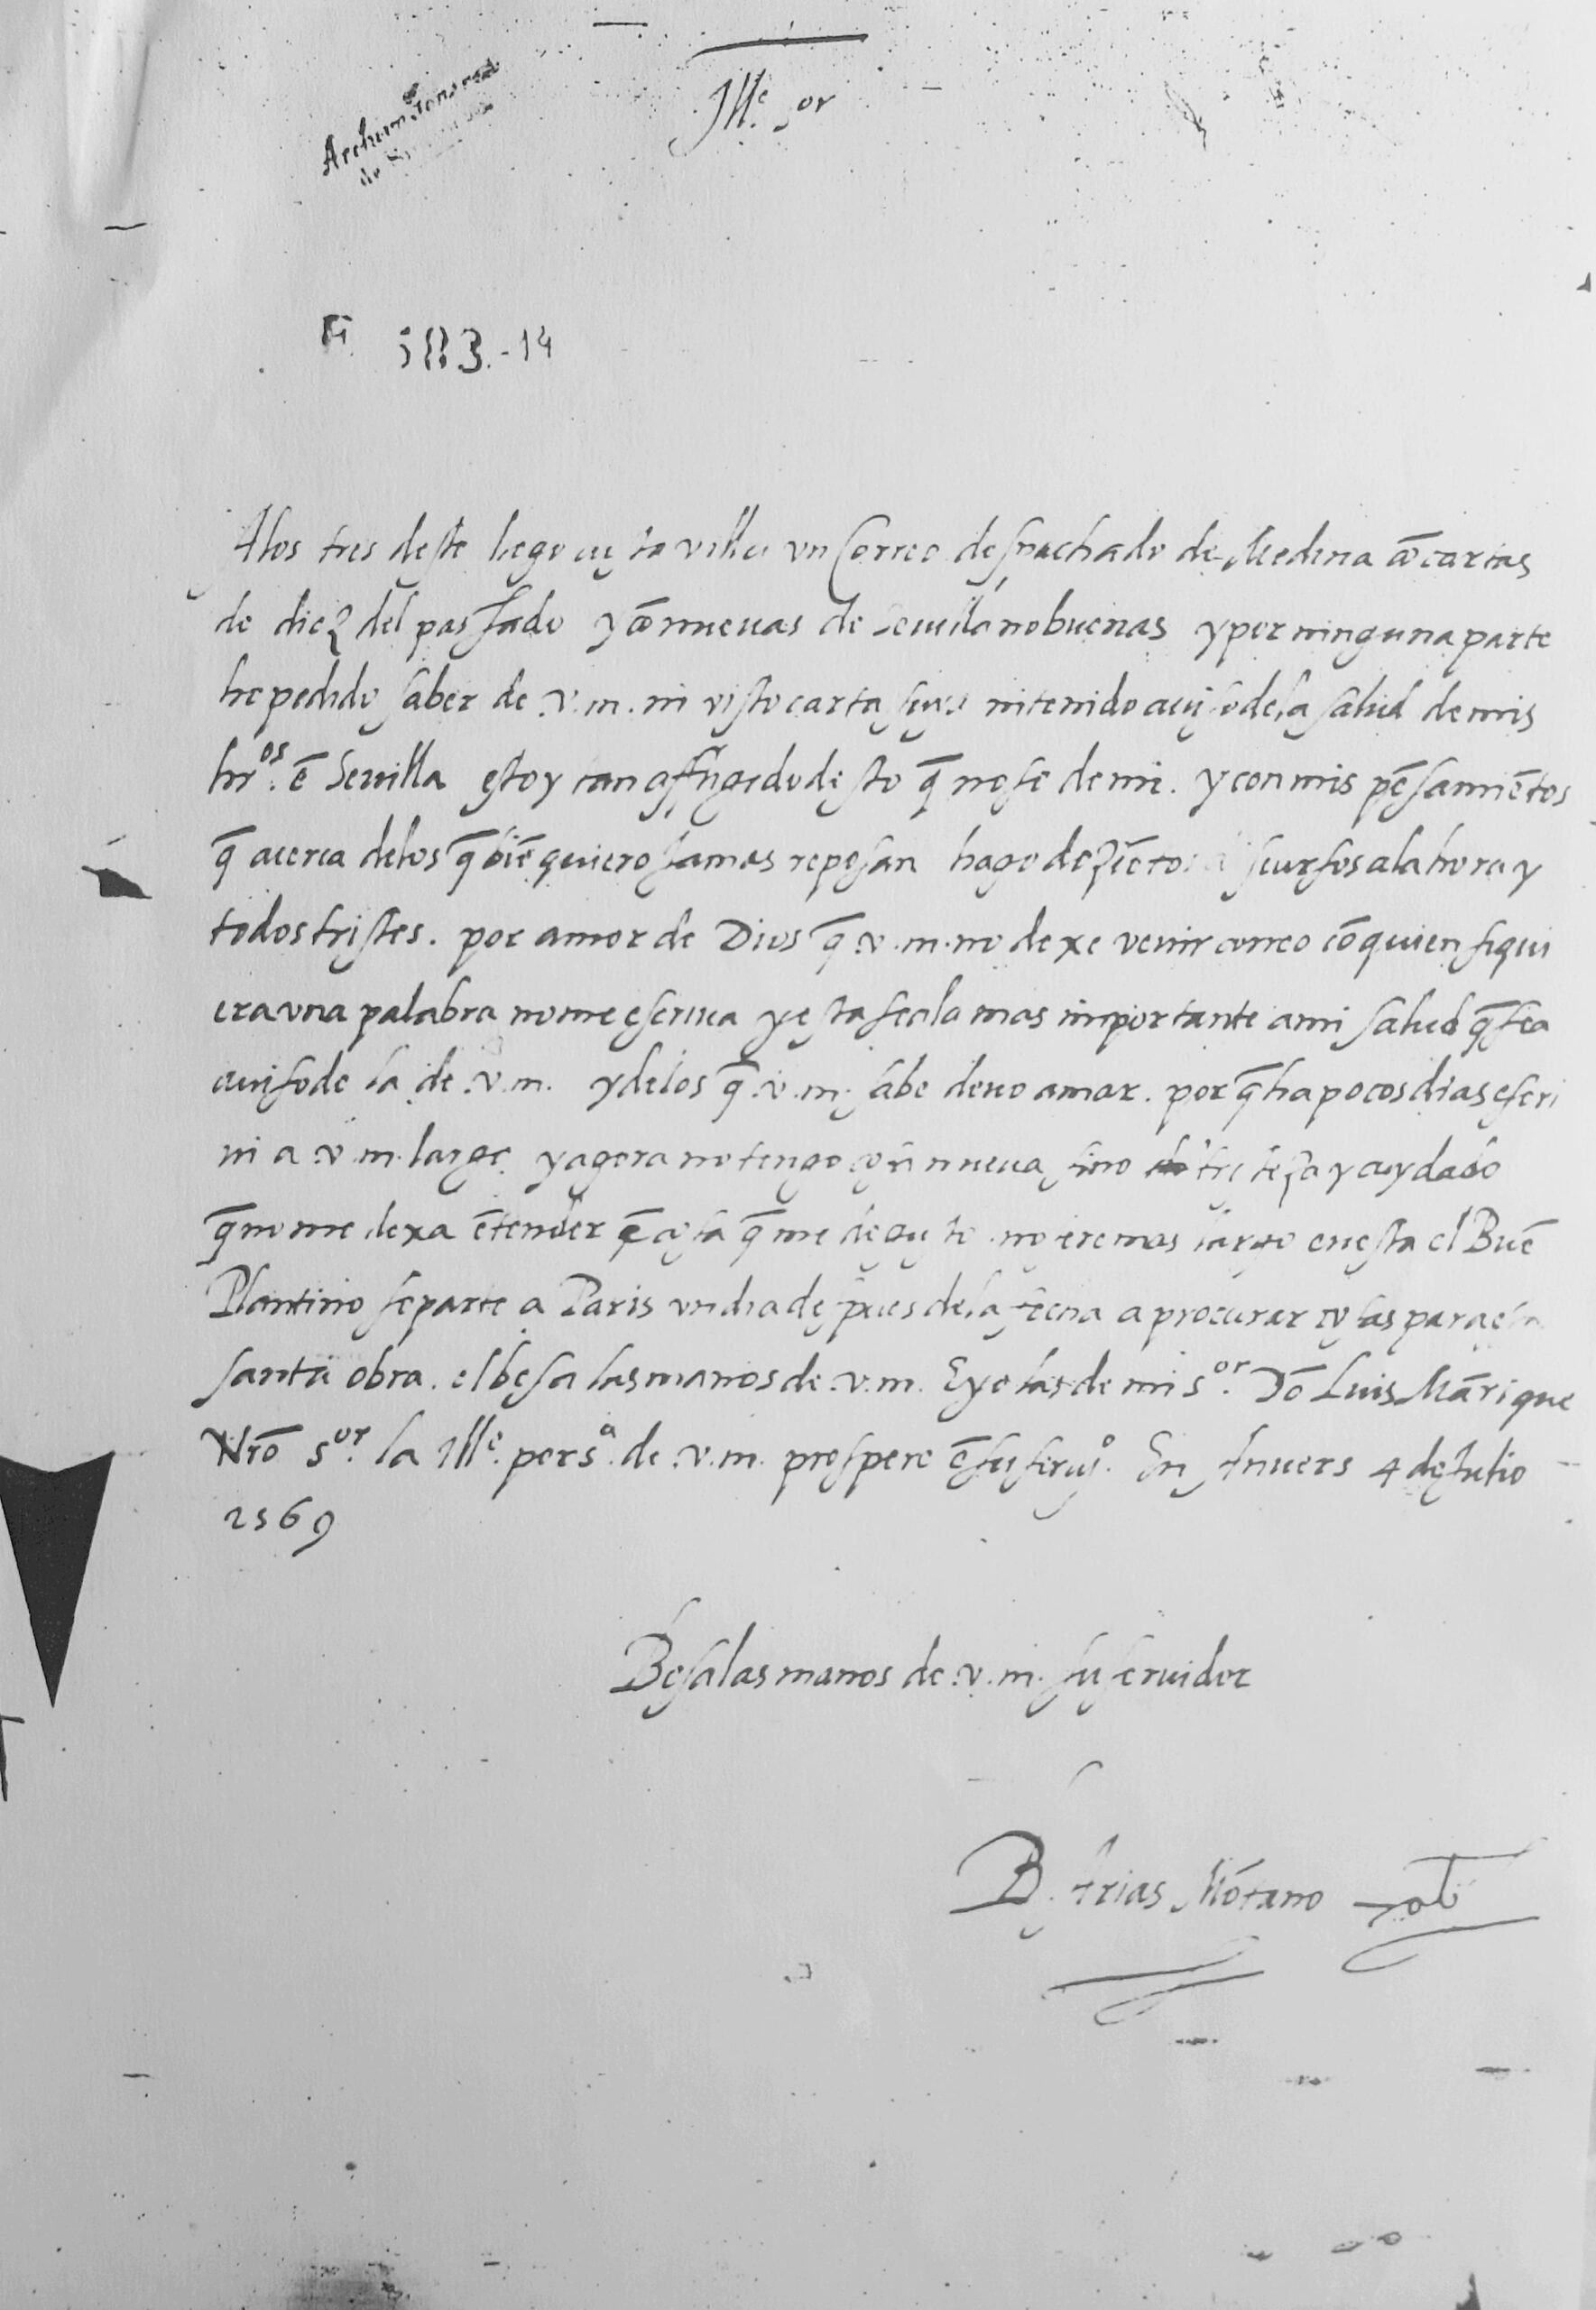 Ille. Sor
Archivo General
de
583.-14
A los tres deste llego a esta villa un Correo despachado de Medina cō cartas
de diez del passado y cō nuevas de Sevilla no buenas y por ninguna parte
he podido saber de .v.m. ni visto carta suya ni tenido aviso de la salud de mis
hros. ē Sevilla estoy tan affligido desto q̄ no se de mi. y con mis pēsamiētos
q̄ acerca de los q̄ biē quiero jamas reposan hago doziētos discursos a la hora y
todos tristes. por amor de Dios q̄ .v.m. no dexe venir correo cō quien siqui
era una palabra no me escriva y esta sea lo mas importante a mi salud q̄ sea
aviso de la de .v.m. y de los q̄ .v.m. sabe devo amar. por q̄ ha pocos dias escri
vi a .v.m. largo y agora no tengo cosa nueva sino tristeza y cuydado
q̄ no me dexa ētender ē cosa q̄ me de gusto no sere mas largo en esta el Buē
Plantino se parte a Paris un dia despues de la fecha a procurar cosas para esta
santa obra. el besa las manos de .v.m. E yo las de mi sor. Dō Luis Mārique
Nrō sor. la Ille. persa. de .v.m. prospere ē su servio. En Anvers 4 de Julio
1569
Besa las manos de .v.m. su servidor
B. Arias Mōtano